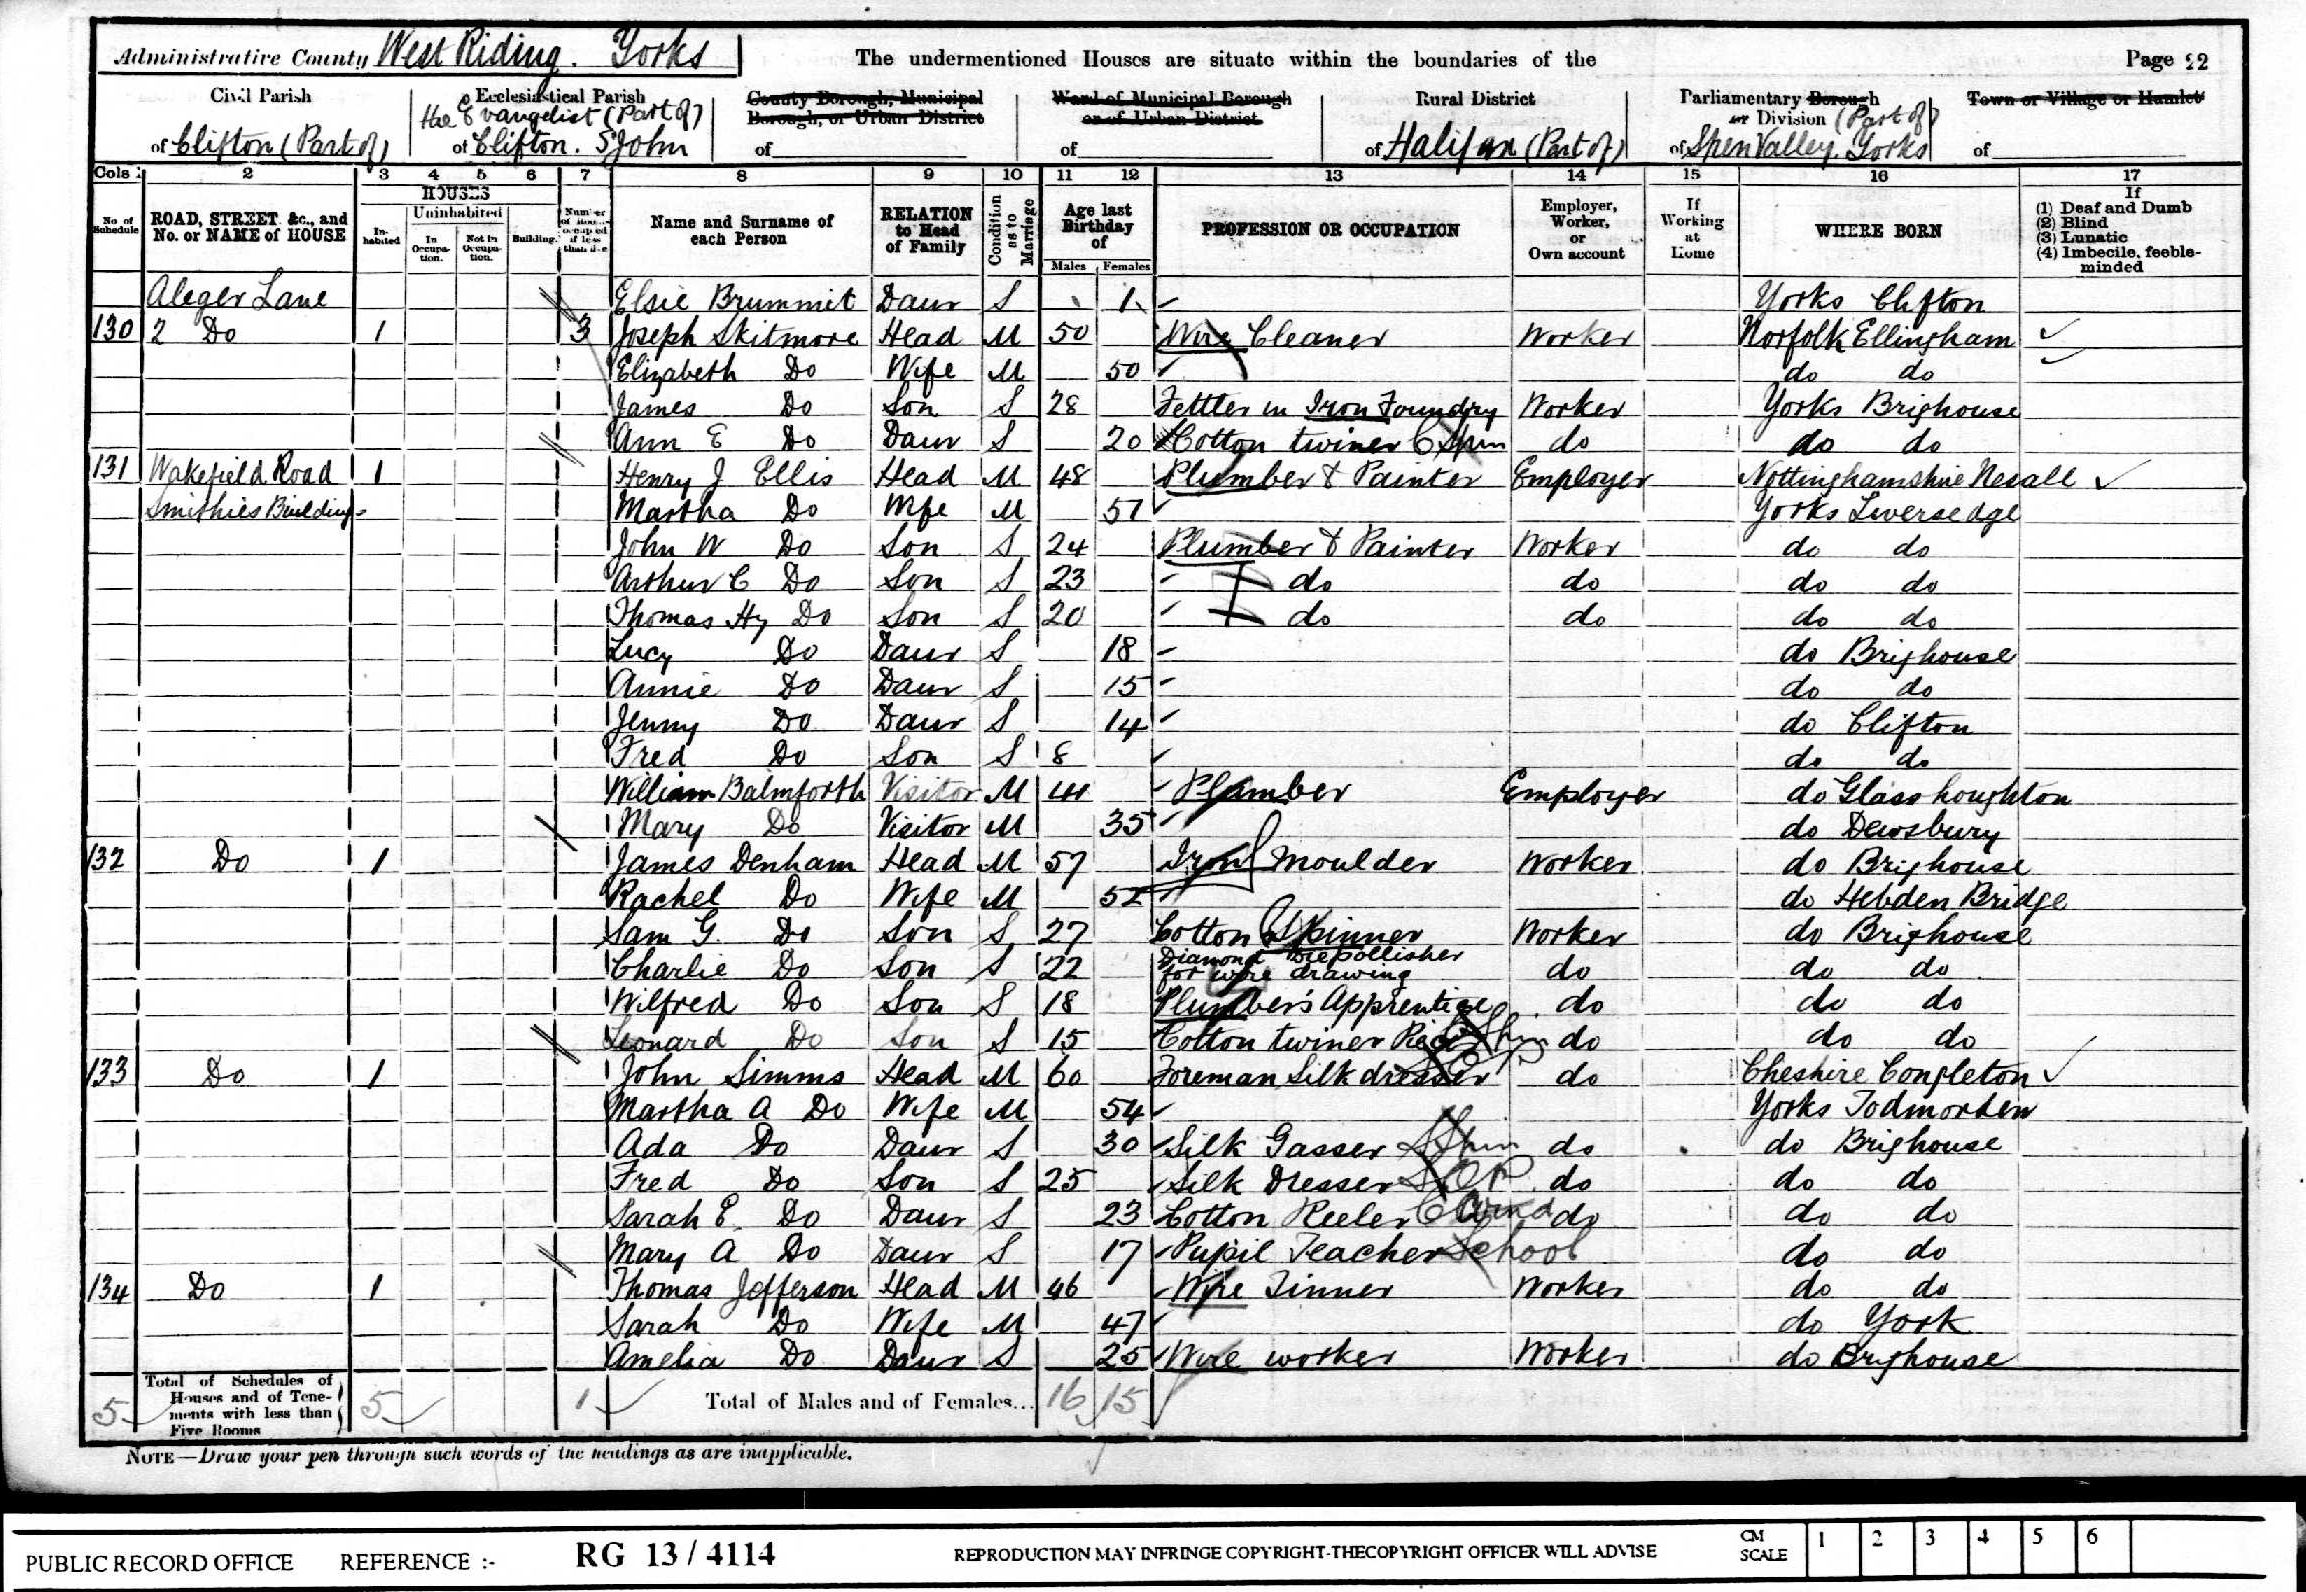 Administrative County West Riding. Yorks The undermentioned Houses are situate within the boundaries of the Page 22
Civil Parish Ecclesiastical Parish County Borough, Municipal Borough, or Urban District Ward of Municipal Borough or of Urban District Rural District Parliamentary Borough or Division (Part of) Town or Village or Hamlet
of Clifton (Part of) the Evangelist (Part of) of Clifton. St John of of of Halifax (Part of) of Spen Valley. Yorks of
Cols 1 2 3 4 5 6 7 8 9 10 11 12 13 14 15 16 17
No. of Schedule ROAD, STREET &c., and No. or NAME of HOUSE HOUSES Inhabited Uninhabited In Occupation. Not in Occupation. Building. Number of rooms occupied if less than five Name and Surname of each Person RELATION to Head of Family Condition as to Marriage Age last Birthday of Males Females PROFESSION OR OCCUPATION Employer, Worker, or Own account If Working at Home WHERE BORN If (1) Deaf and Dumb (2) Blind (3) Lunatic (4) Imbecile, feeble-minded
Aleger Lane Elsie Brummit Daur S 1 Yorks Clifton
130 2 Do 1 3 Joseph Skitmore Head M 50 Wire Cleaner Worker Norfolk Ellingham
Elizabeth Do Wife M 50 do do
James Do Son S 28 Fettler in Iron Foundry Worker Yorks Brighouse
Ann E Do Daur S 20 Cotton twiner C Spin do do do
131 Wakefield Road 1 Henry J Ellis Head M 48 Plumber & Painter Employer Nottinghamshire
Smithies Buildings Martha Do Wife M 57 Yorks Liversedge
John W Do Son S 24 Plumber & Painter Worker do do
Arthur C Do Son S 23 do do do do
Thomas Hy Do Son S 20 do do do do
Lucy Do Daur S 18 do Brighouse
Annie Do Daur S 15 do do
Jenny Do Daur S 14 do Clifton
Fred Do Son S 8 do do
William Balmforth Visitor M 41 Plumber Employer do Glass houghton
Mary Do Visitor M 35 do Dewsbury
132 Do 1 James Denham Head M 57 Iron Moulder Worker do Brighouse
Rachel Do Wife M 52 do Hebden Bridge
Sam G. Do Son S 27 Cotton Spinner Worker do Brighouse
Charlie Do Son S 22 Diamond Die pollisher for wire drawing do do do
Wilfred Do Son S 18 Plumber's Apprentice do do do
Leonard Do Son S 15 Cotton twiner do do do
133 Do 1 John Simms Head M 60 Foreman Silk dresser do Cheshire Congleton
Martha A Do Wife M 54 Yorks Todmorden
Ada Do Daur S 30 Silk Gasser S Spin do do Brighouse
Fred Do Son S 25 Silk Dresser do do do
Sarah E. Do Daur S 23 Cotton Reeler C Wind do do do
Mary A Do Daur S 17 Pupil Teacher School do do
134 Do 1 Thomas Jefferson Head M 46 Wire Tinner Worker do do
Sarah Do Wife M 47 do York
Amelia Do Daur S 25 Wire worker Worker do Brighouse
5 Total of Schedules of Houses and of Tenements with less than Five Rooms 5 1 Total of Males and of Females... 16 15
NOTE—Draw your pen through such words of the headings as are inapplicable.
PUBLIC RECORD OFFICE REFERENCE :- RG 13 / 4114 REPRODUCTION MAY INFRINGE COPYRIGHT-THECOPYRIGHT OFFICER WILL ADVISE CM SCALE 1 2 3 4 5 6